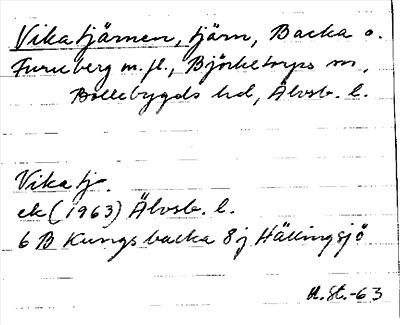 Vikatjärnen, tjärn, Backa o.
Furuberg m.fl., Björketorps sn,
Bollebygds hd, Älvsb. l.
Vikatj.
ek (1963) Älvsb. l.
6 B Kungsbacka 8j Hällingsjö
H.St.-63